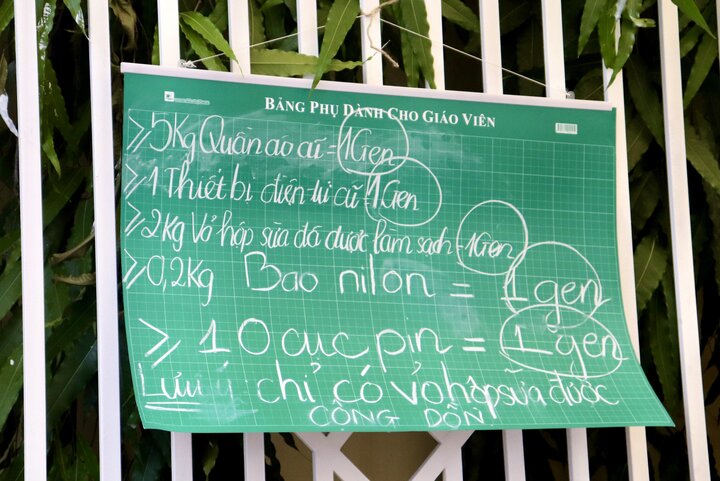 BẢNG PHỤ DÀNH CHO GIÁO VIÊN
≥5Kg Quần áo cũ = 1Gen
≥1 Thiết bị điện tử cũ = 1Gen
≥2Kg Vỏ hộp sữa đã được làm sạch = 1Gen
≥0,2Kg Bao nilon = 1gen
≥ 10 cục pin = 1gen
Lưu ý: chỉ có vỏ hộp sữa được
CỘNG DỒN!